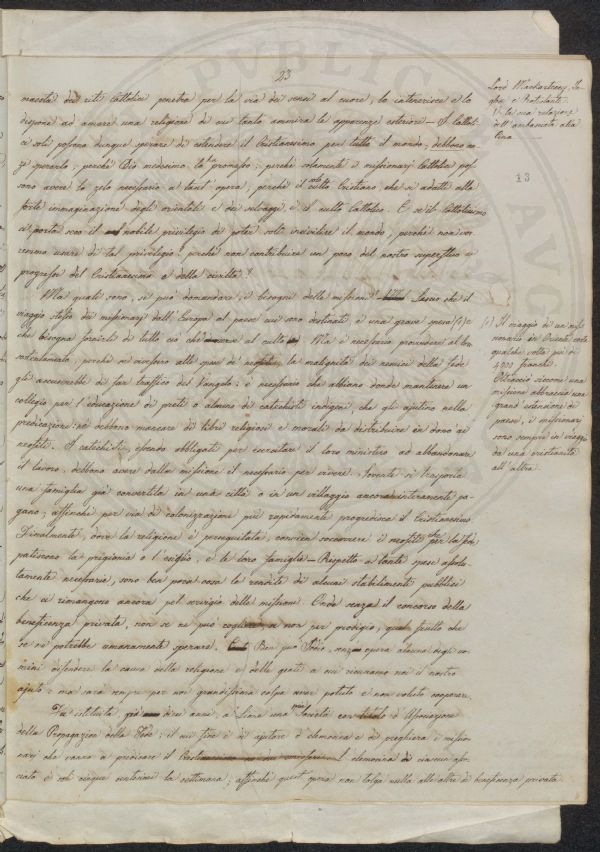 23
maestà dei riti Cattolici penetra per la via dei sensi al cuore, lo intenerisce e lo
dispone ad amare una religione di cui tanto ammira le apparenze esteriori — I Cattoli-
ci soli possono dunque sperare di estendere il Cristianesimo per tutto il mondo; debbono an-
ze sperarlo; perchè Dio medesimo l'ha promesso; perchè solamente i missionarj Cattolici pos-
sono avere lo zelo necessario a tant'opera; perchè il solo culto Cristiano, che si adatti alla
forte immaginazione degli orientali e dei selvaggi è il culto Cattolico. E se il Cattolicismo
ci porta seco il nobile privilegio di poter solo incivilire il mondo, perchè non vor-
remmo usare di tal privilegio? perchè non contribuire un poco del nostro superfluo a'
progressi del Cristianesimo e della civiltà?
Ma quali sono, si può domandare, i bisogni delle missioni? Lascio che il
viaggio stesso dei missionarj dall'Europa al paese cui sono destinati è una grave spesa (1) e
che bisogna fornirli di tutto ciò che serve al culto. Ma è necessario provvedere al lor
sostentamento; perchè se vivessero alle spese de' neofiti, la malignità dei nemici della fede
gli accuserebbe di far traffico del Vangelo: è necessario che abbiano donde mantenere un
collegio per l'educazione di preti o almeno di catechisti indigeni, che gli ajutino nella
predicazione: nè debbono mancare di libri religiosi e morali da distribuire in dono ai
neofiti. I catechisti, essendo obbligati per esercitare il loro ministero ad abbandonare
il lavoro, debbono avere dalla missione il necessario per vivere. Sovente si trasporta
una famiglia già convertita in una città o in un villaggio ancora interamente pa-
gano; affinchè per via di colonizzazione più rapidamente progredisca il Cristianesimo
Finalmente, dove la religione è perseguitata, convien soccorrere i neofiti che per la fede
patiscono la prigionia o l'esiglio, e le loro famiglie — Rispetto a tante spese assolu-
tamente necessarie, sono ben poca cosa le rendite di alcuni stabilimenti pubblici
che ci rimangono ancora pel servigio delle missioni. Onde senza il concorso della
beneficenza privata, non se ne può cogliere, se non per prodigio, quel frutto che
se ne potrebbe umanamente sperare. Ben può Iddio, senza opera alcuna degli uo-
mini difendere la causa della religione e delle genti a cui rechiamo noi il nostro
ajuto; ma sarà sempre per noi grandissima colpa aver potuto e non voluto cooperare.
Fu istituita, già dieci anni, a Lione una pia Società con titolo d'Associazione
della Propagazion della Fede; il cui fine è di ajutare d'elemosina e di preghiera i missio-
narj che vanno a predicare il Cristianesimo L'elemosina di ciascun asso-
ciato è sol cinque centesimi la settimana; affinchè quest'opera non tolga nulla alle altre di beneficenza privata
Lord Mackartney, In-
glese e Protestante
la sua relazione
dell'ambasciata alla
Cina
13
(1) Il viaggio di un mis-
sionario in Oriente costa
qualche volta più di
4000 franchi.
Oltracciò siccome una
missione abbraccia una
grand'estensione di
paese, i missionarj
sono sempre in viaggio
da una cristianità
all'altra.